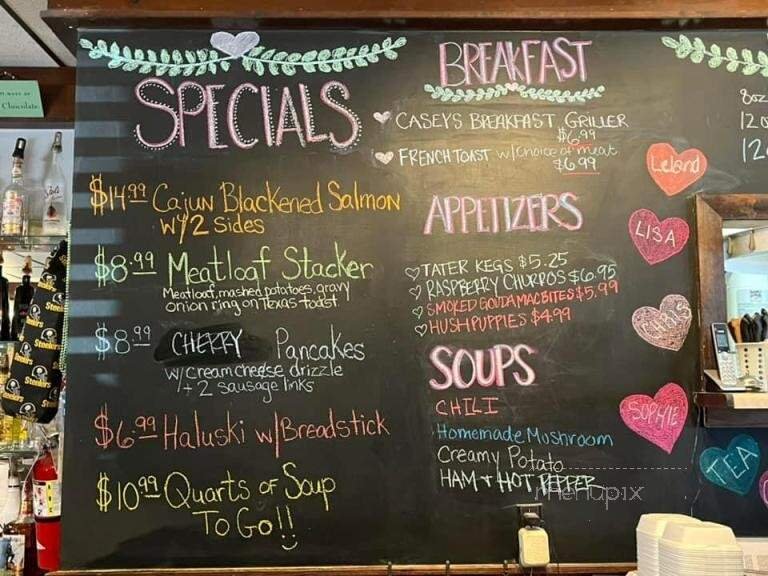 SPECIALS
$14.99 Cajun Blackened Salmon
w/ 2 Sides
$8.99 Meatloaf Stacker
Meatloaf, mashed potatoes, gravy
onion ring on Texas toast
$8.99 CHERRY Pancakes
w/ cream cheese drizzle
+ 2 sausage links
$6.99 Haluski w/ Breadstick
$10.99 Quarts of Soup
To Go!!
BREAKFAST
CASEYS BREAKFAST GRILLER
$6.99
FRENCH TOAST w/ choice of meat
$6.99
APPETIZERS
TATER KEGS $5.25
RASPBERRY CHURROS $6.95
SMOKED GOUDA MAC BITES $5.99
HUSHPUPPIES $4.99
SOUPS
CHILI
Homemade Mushroom
Creamy Potato
HAM + HOT PEPPER
menupix
Leland
LISA
CHRIS
SOPHIE
TEA
8oz
12o
Chocolate
Steelers
Steelers
Steelers